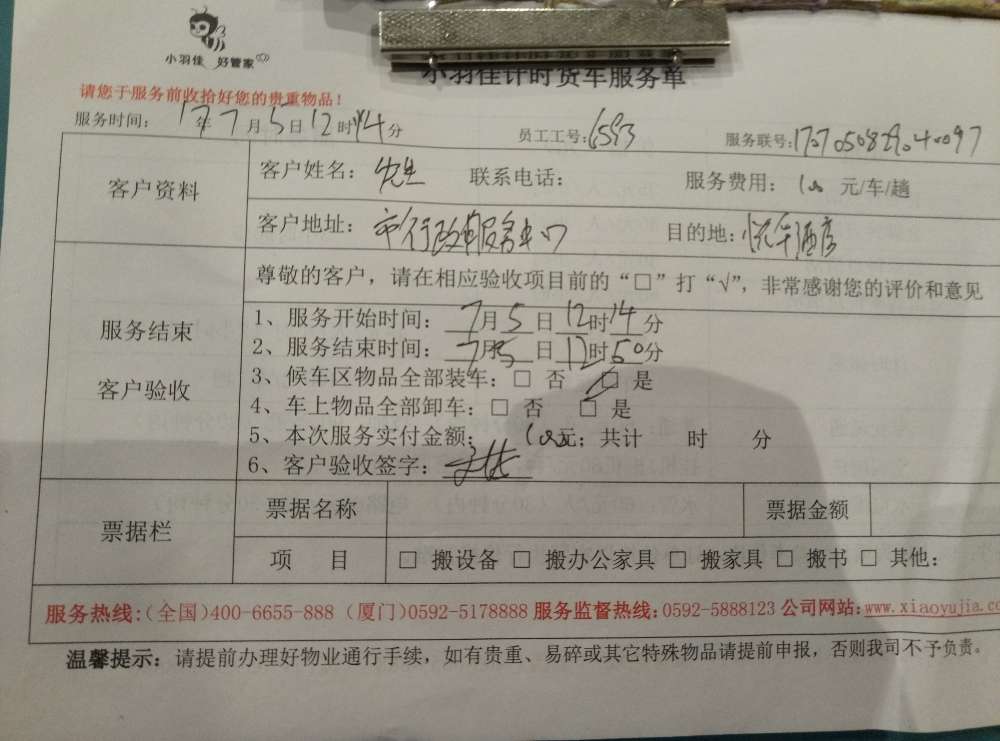 小羽佳 好管家
小羽佳计时货车服务单
请您于服务前收拾好您的贵重物品！
服务时间： 17年7月5日12时14分 员工工号：6593 服务联号：
客户资料
客户姓名： 先生 联系电话： 服务费用： 100 元/车/趟
客户地址： 市行政服务中心 目的地： 酒店
尊敬的客户，请在相应验收项目前的“□”打“√”，非常感谢您的评价和意见
服务结束
客户验收
1、服务开始时间： 7月5日12时14分
2、服务结束时间： 7月5日12时50分
3、候车区物品全部装车：□ 否 ☑ 是
4、车上物品全部卸车：□ 否 □ 是
5、本次服务实付金额： 100元；共计 时 分
6、客户验收签字：
票据栏
票据名称 票据金额
项 目 □ 搬设备 □ 搬办公家具 □ 搬家具 □ 搬书 □ 其他：
服务热线：（全国）400-6655-888 （厦门）0592-5178888 服务监督热线：0592-5888123 公司网站：www.xiaoyujia.co
温馨提示：请提前办理好物业通行手续，如有贵重、易碎或其它特殊物品请提前申报，否则我司不予负责。